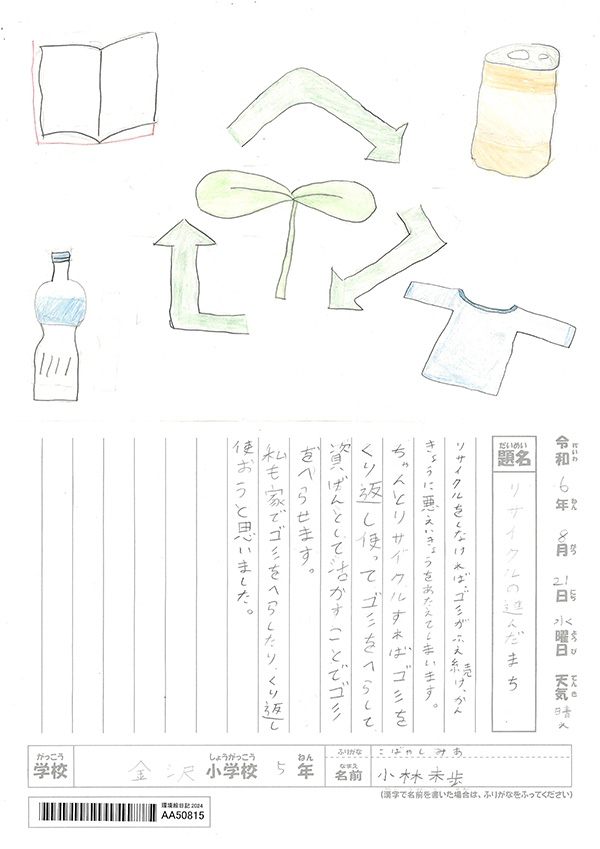 令和6年8月21日水曜日 天気 晴れ
れいわ ねん がつ にち ようび てんき
だいめい
題名
リサイクルの進んだまち
リサイクルをしなければ、ゴミがふえ続け、かん
きょうに悪えいきょうをあたえてしまいます。
ちゃんとリサイクルすればゴミを
くり返し使ってゴミをへらして
資げんとして活かすことでゴミ
をへらせます。
私も家でゴミをへらしたり、くり返し
使おうと思いました。
がっこう しょうがっこう ねん
学校 金沢小学校 5年
ふりがな こばやしみあ
なまえ
名前 小林未歩
(漢字で名前を書いた場合は、ふりがなをふってください)
環境絵日記2024
AA50815